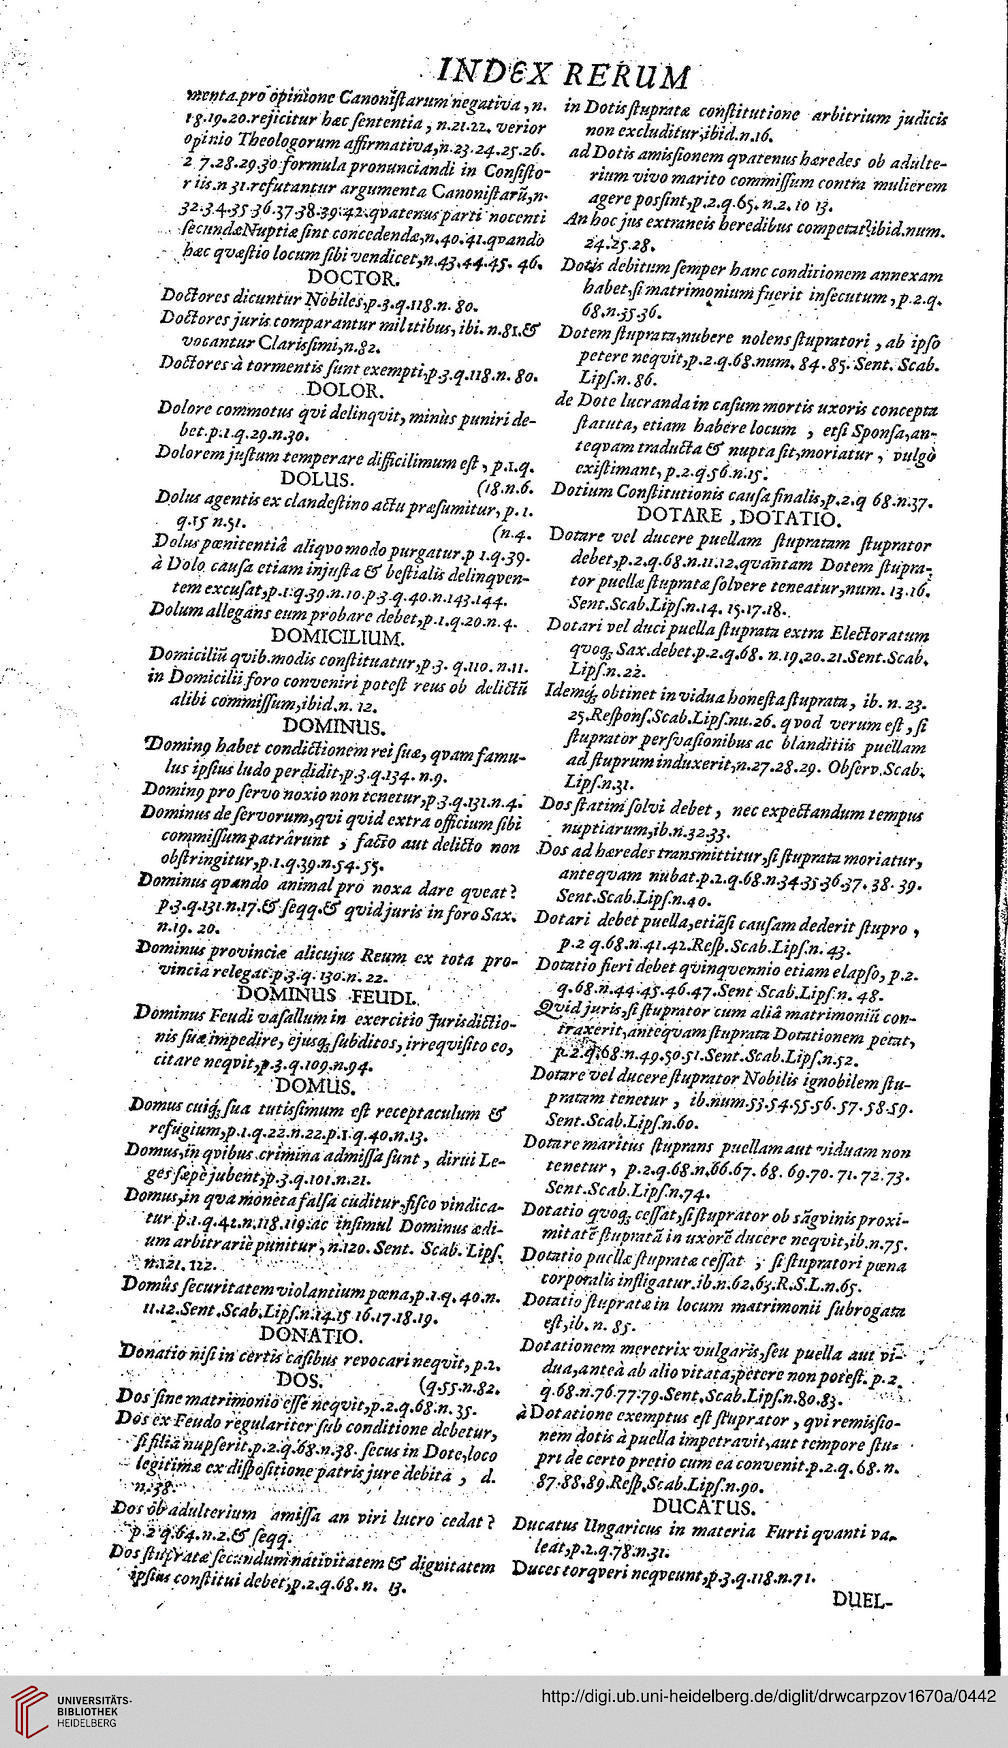 INDEX RERUM
menta.pro opinione Canoniſtarum negativa, n.
18.19.20.rejicitur hæc ſententia, n.21.22. verior
opinio Theologorum affirmativa, n.23.24.25.26.
27.28.29.30 formula pronunciandi in Conſiſto-
riis.n 31.refutantur argumenta Canoniſtarū, n.
32.3.4.35 36.37.38.39.42.qvatenus parti nocenti
ſecundæ Nuptiæ ſint concedendæ, n. 40.41.qvando
hæc qvæſtio locum ſibi vendicet, n.43.44.45. 46.
DOCTOR.
Doctores dicuntur Nobiles, p.3.q.118.n. 80.
Doctores juris comparantur militibus, ibi. n.81.&
vocantur Clarisſimi, n.82.
Doctores à tormentis ſunt exempti, p.3.q.118.n. 80.
DOLOR.
Dolore commotus qvi delinqvit, minùs puniri de-
bet.p.1.q.29.n.30.
Dolorem juſtum temperare difficilimum eſt, p.1.q.
DOLUS. (18.n.6.
Dolus agentis ex clandeſtino actu præſumitur, p. 1.
q.15 n.51. (n.4.
Dolus pœnitentiâ aliqvo modo purgatur.p 1.q.39.
à Dolo cauſa etiam injuſta & beſtialis delinqven-
tem excuſat, p.1.q.39.n.10.p.3.q.40.n.143.144.
Dolum allegans eum probare debet, p.1.q.20.n.4.
DOMICILIUM.
Domiciliū qvib.modis conſtituatur, p.3. q.110.n.11.
in Domicilii foro conveniri poteſt reus ob delictū
alibi commiſſum, ibid.n. 12.
DOMINUS.
Dominꝰ habet condictionem rei ſuæ, qvam famu-
lus ipſius ludo perdidit, p.3.q.134. n.9.
Dominꝰ pro ſervo noxio non tenetur, p 3.q.131.n.4.
Dominus de ſervorum, qvi qvid extra officium ſibi
commiſſum patrârunt, facto aut delicto non
obſtringitur, p.1.q.39.n.54.55.
Dominus qvando animal pro noxa dare queat?
p.3.q.131.n.17.& ſeqq.& qvid juris in foro Sax.
n.19. 20.
Dominus provinciæ alicujus Reum ex tota pro-
vincia relegat.p.3.q.130.n. 22.
DOMINUS FEUDI.
Dominus Feudi vaſallum in exercitio Jurisdictio-
nis ſuæ impedire, ejusq́; ſubditos, irreqviſito eo,
citare neqvit, p.3.q.109.n.94.
DOMUS.
Domus cuiq́; ſua tutisſimum eſt receptaculum &
refugium, p.1.q.22.n.22.p.1.q.40.n.13.
Domus, in qvibus crimina admiſſa ſunt, dirui Le-
ges ſæpè jubent, p.3.q.101.n.21.
Domus, in qva moneta falſa cuditur, fiſco vindica-
tur p.1.q.42.n.118.119.ac inſimul Dominus ædi-
um arbitrariè punitur, n.120. Sent. Scab. Lipſ.
n.121. 122.
Domûs ſecuritatem violantium pœna, p.1.q. 40.n.
11.12.Sent.Scab.Lipſ.n.14.15 16.17.18.19.
DONATIO.
Donatio niſi in certis caſibus revocari neqvit, p.2.
DOS. (q.55.n.82.
Dos ſine matrimonio eſſe neqvit, p.2.q.68.n. 35.
Dos ex Feudo regulariter ſub conditione debetur,
ſi filia nupſerit.p.2.q.68.n.38. ſecus in Dote, loco
legitimæ ex diſpoſitione patris jure debita, d.
n.38.
Dos ob adulterium amiſſa an viri lucro cedat?
p.2 q.64.n.2.& ſeqq.
Dos ſtupratæ ſecundum nativitatem & dignitatem
ipſius conſtitui debet, p.2.q.68. n. 13.
in Dotis ſtupratæ conſtitutione arbitrium judicis
non excluditur, ibid.n.16.
ad Dotis amisſionem qvatenus hæredes ob adulte-
rium vivo marito commiſſum contra mulierem
agere posſint, p.2.q.65. n.2. 10 13.
An hoc jus extraneis heredibus competat? ibid.num.
24.25.28.
Dotis debitum ſemper hanc conditionem annexam
habet, ſi matrimonium fuerit inſecutum, p.2.q.
68.n.35.36.
Dotem ſtuprata, nubere nolens ſtupratori, ab ipſo
petere neqvit, p.2.q.68.num. 84.85. Sent. Scab.
Lipſ.n. 86.
de Dote lucranda in caſum mortis uxoris concepta
ſtatuta, etiam habere locum, etſi Sponſa, an-
teqvam traducta & nupta ſit, moriatur, vulgò
exiſtimant, p.2.q.56.n.15.
Dotium Conſtitutionis cauſa finalis, p.2.q 68.n.37.
DOTARE, DOTATIO.
Dotare vel ducere puellam ſtupratam ſtuprator
debet, p.2.q.68.n.11.12.qvantam Dotem ſtupra-
tor puellæ ſtupratæ ſolvere teneatur, num. 13.16.
Sent.Scab.Lipſ.n.14. 15.17.18.
Dotari vel duci puella ſtuprata extra Electoratum
qvoq́; Sax.debet.p.2.q.68. n.19.20.21.Sent.Scab.
Lipſ.n.22.
Idemq́; obtinet in vidua honeſta ſtuprata, ib. n. 23.
25.Reſponſ.Scab.Lipſ.nu.26. qvod verum eſt, ſi
ſtuprator perſvaſionibus ac blanditiis puellam
ad ſtuprum induxerit, n.27.28.29. Obſerv.Scab.
Lipſ.n.31.
Dos ſtatim ſolvi debet, nec expectandum tempus
nuptiarum, ib.n.32.33.
Dos ad hæredes transmittitur, ſi ſtuprata moriatur,
antequam nubat.p.2.q.68.n.34.35.36.37. 38. 39.
Sent.Scab.Lipſ.n.40.
Dotari debet puella, etiāſi cauſam dederit ſtupro,
p.2 q.68.n.41.42.Reſp.Scab.Lipſ.n. 43.
Dotatio fieri debet qvinqvennio etiam elapſo, p.2.
q.68.n.44.45.46.47.Sent Scab.Lipſ.n. 48.
Qvid juris, ſi ſtuprator cum aliâ matrimonium con-
traxerit, anteqvam ſtuprata Dotationem petat,
p.2.q.68.n.49.50.51.Sent.Scab.Lipſ.n.52.
Dotare vel ducere ſtuprator Nobilis ignobilem ſtu-
pratam tenetur, ib.num.53.54.55.56.57.58.59.
Sent.Scab.Lipſ.n.60.
Dotare maritus ſtuprans puellam aut viduam non
tenetur, p.2.q.68.n.66.67. 68. 69.70. 71. 72.73.
Sent.Scab.Lipſ.n.74.
Dotatio qvoq́; ceſſat, ſi ſtuprator ob sāgvinis proxi-
mitatē ſtupratā in uxorē ducere neqvit, ib.n.75.
Dotatio puellæ ſtupratæ ceſſat, ſi ſtupratori pœna
corporalis infligatur.ib.n.62.63.R.S.L.n.65.
Dotatio ſtupratæ in locum matrimonii ſubrogata
eſt, ib. n. 85.
Dotationem meretrix vulgaris, ſeu puella aut vi-
dua, anteà ab alio vitata, petere non poteſt. p.2.
q.68.n.76.77.79.Sent.Scab.Lipſ.n.80.83.
à Dotatione exemptus eſt ſtuprator, qvi remisſio-
nem dotis à puella impetravit, aut tempore ſtu-
pri de certo pretio cum ea convenit.p.2.q.68.n.
87.88.89.Reſp.Scab.Lipſ.n.90.
DUCATUS.
Ducatus Ungaricus in materia Furti qvanti va-
leat, p.2.q.78.n.31.
Duces torqveri neqveunt, p.3.q.118.n.71.
DUEL-
UNIVERSITÄTS-
BIBLIOTHEK
HEIDELBERG
http://digi.ub.uni-heidelberg.de/diglit/drwcarpzov1670a/0442